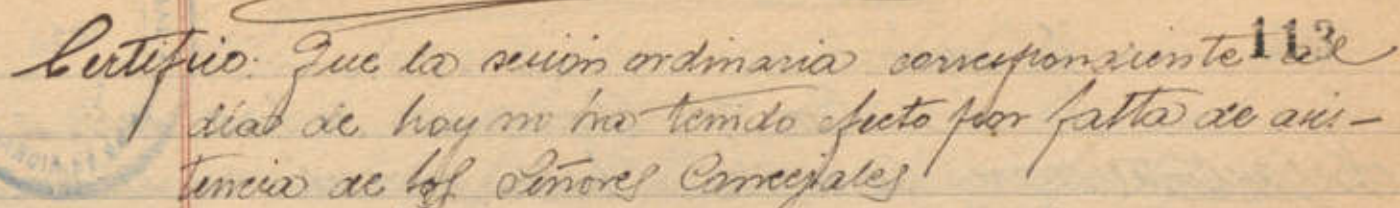 Certifico: Que la sesión ordinaria correspondiente al 113
día de hoy no ha tenido efecto por falta de asis-
tencia de los Señores Concejales